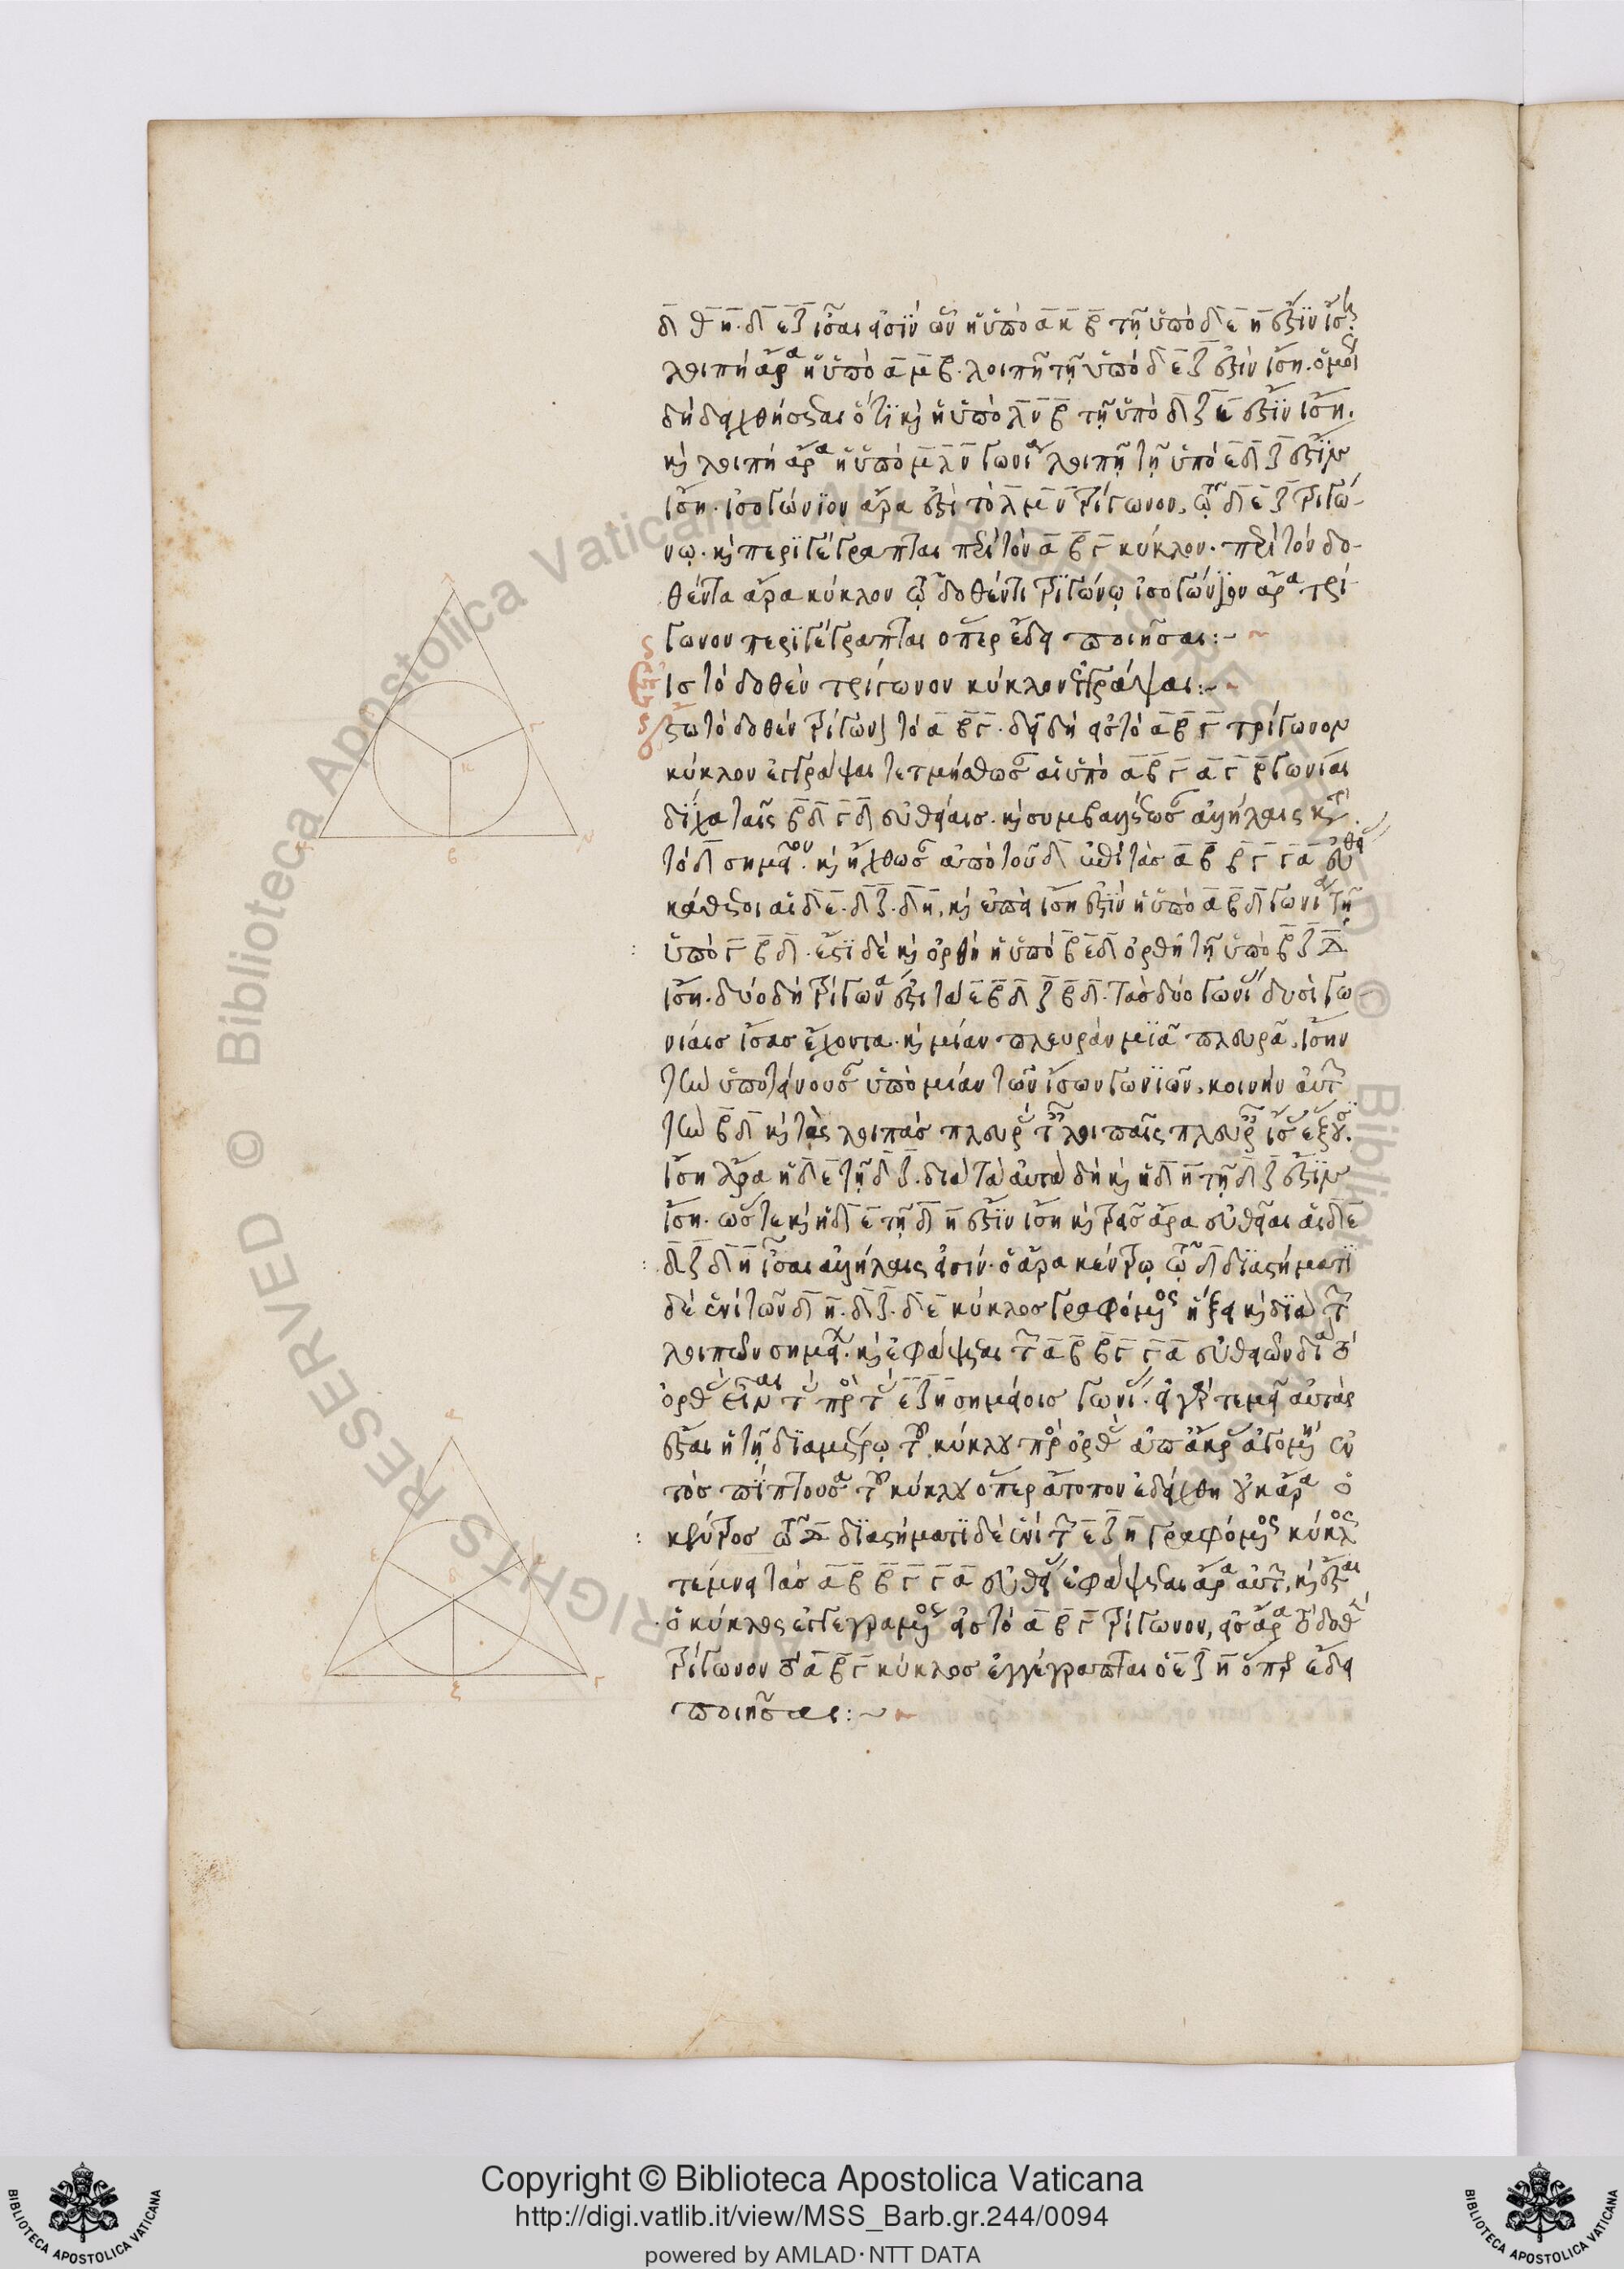 δ ε η · δ ε ζ ἴσαι εἰσὶν ὧν ἡ ὑπὸ α κ β τῇ ὑπὸ δ ε η ἐστὶν ἴση
λοιπὴ ἄρα ἡ ὑπὸ α μ β · λοιπῇ τῇ ὑπὸ δ ε ζ ἐστὶν ἴση · ὁμοί
δὴ δειχθήσεται ὅτι καὶ ἡ ὑπὸ λ ν β τῇ ὑπὸ δ ζ ε ἐστὶν ἴση ·
καὶ λοιπὴ ἄρα ἡ ὑπὸ μ λ ν γωνία λοιπῇ τῇ ὑπὸ ε δ ζ ἐστὶν
ἴση · ἰσογώνιον ἄρα ἐστὶ τὸ λ μ ν τρίγωνον, τῷ δ ε ζ τριγώ-
νῳ · καὶ περιγέγραπται περὶ τὸν α β γ κύκλον · περὶ τὸν δο-
θέντα ἄρα κύκλον τῷ δοθέντι τριγώνῳ ἰσογώνιον ἄρα τρί
γωνον περιγέγραπται ὅπερ ἔδει ποιῆσαι :~
δ
Εἰς τὸ δοθὲν τρίγωνον κύκλον ἐγγράψαι :~
ἔστω τὸ δοθὲν τρίγωνον τὸ α β γ · δεῖ δὴ εἰς τὸ α β γ τρίγωνον
κύκλον ἐγγράψαι τετμήσθωσαν αἱ ὑπὸ α β γ α γ β γωνίαι
δίχα ταῖς β δ γ δ εὐθείαις · καὶ συμβαλέτωσαν ἀλλήλαις κατὰ
τὸ δ σημεῖον · καὶ ἤχθωσαν ἀπὸ τοῦ δ ἐπὶ τὰς α β β γ γ α εὐθεί
κάθετοι αἱ δ ε · δ ζ · δ η, καὶ ἐπεὶ ἴση ἐστὶν ἡ ὑπὸ α β δ γωνία τῇ
ὑπὸ γ β δ · ἔστι δὲ καὶ ὀρθὴ ἡ ὑπὸ β ε δ ὀρθῇ τῇ ὑπὸ β ζ δ
ἴση · δύο δὴ τρίγωνα ἐστὶ τὰ ε β δ ζ β δ · τὰς δύο γωνίας δυσὶ γω-
νίαις ἴσας ἔχοντα · καὶ μίαν πλευρὰν μιᾷ πλευρᾷ, ἴσην
τὴν ὑποτείνουσαν ὑπὸ μίαν τῶν ἴσων γωνιῶν, κοινὴν αὐτῶν
τὴν β δ καὶ τὰς λοιπὰς πλευρὰς ταῖς λοιπαῖς πλευραῖς ἴσας ἕξουσιν ·
ἴση ἄρα ἡ δ ε τῇ δ ζ · διὰ τὰ αὐτὰ δὴ καὶ ἡ δ η τῇ δ ζ ἐστὶν
ἴση · ὥστε καὶ ἡ δ ε τῇ δ η ἐστὶν ἴση καὶ τρεῖς ἄρα εὐθεῖαι αἱ δ ε
δ ζ δ η ἴσαι ἀλλήλαις εἰσίν · ὁ ἄρα κέντρῳ τῷ δ διαστήματι
δὲ ἑνὶ τῶν δ η · δ ζ · δ ε κύκλος γραφόμενος ἥξει καὶ διὰ τῶν
λοιπῶν σημείων · καὶ ἐφάψεται τῶν α β β γ γ α εὐθειῶν διὰ τὸ
ὀρθὰς εἶναι τὰς πρὸς τοῖς ε ζ η σημείοις γωνίας · εἰ γὰρ τεμεῖ αὐτὰς
ἔσται ἡ τῇ διαμέτρῳ τοῦ κύκλου πρὸς ὀρθὰς ἀπ' ἄκρας ἀγομένη ἐν
τὸς πίπτουσα τοῦ κύκλου ὅπερ ἄτοπον ἐδείχθη οὐκ ἄρα ὁ
κέντρος τῷ δ διαστήματι δὲ ἑνὶ τῶν ε ζ η γραφόμενος κύκλος
τέμνει τὰς α β β γ γ α εὐθείας ἐφάψεται ἄρα αὐτῶν, καὶ ἔσται
ὁ κύκλος ἐγγεγραμμένος εἰς τὸ α β γ τρίγωνον, εἰς ἄρα τὸ δοθὲν
τρίγωνον τὸ α β γ κύκλος ἐγγέγραπται ὁ ε ζ η ὅπερ ἔδει
ποιῆσαι :~
Copyright © Biblioteca Apostolica Vaticana
http://digi.vatlib.it/view/MSS_Barb.gr.244/0094
powered by AMLAD·NTT DATA
BIBLIOTECA APOSTOLICA VATICANA
BIBLIOTECA APOSTOLICA VATICANA